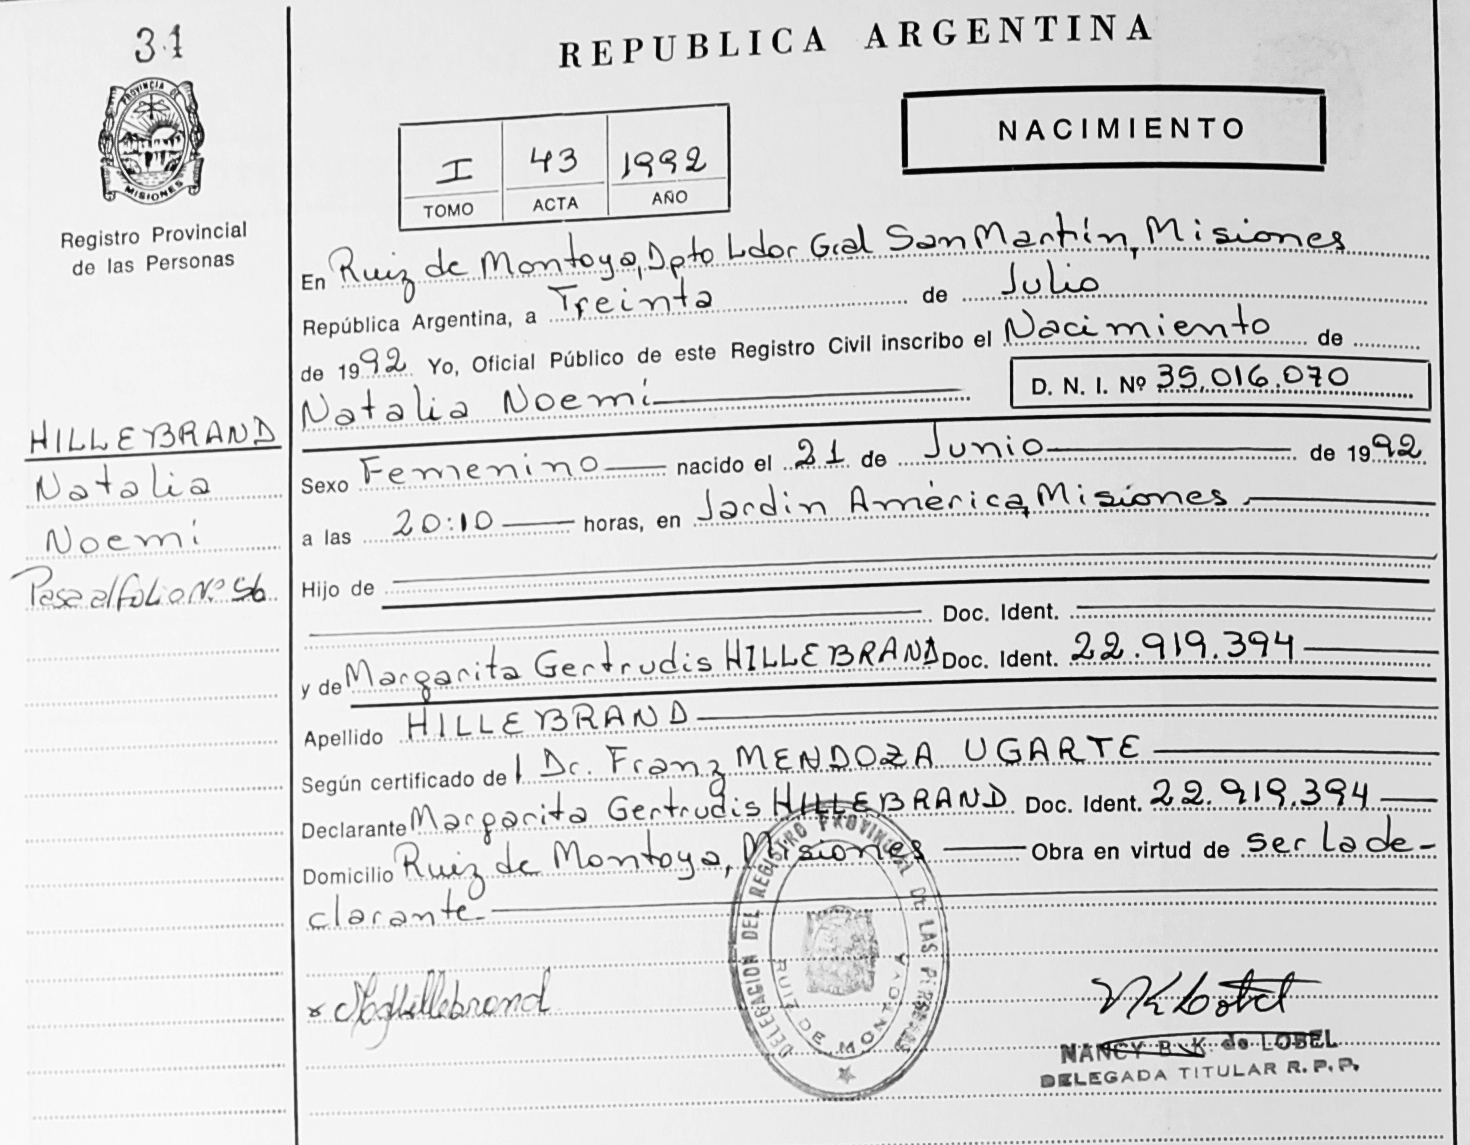 31
PROVINCIA DE
MISIONES
Registro Provincial
de las Personas
HILLEBRAND
Natalia
Noemí
Pasa al folio Nº 56
REPUBLICA ARGENTINA
NACIMIENTO
I 43 1992
TOMO ACTA AÑO
En Ruiz de Montoya, Dpto Ldor Gral San Martín, Misiones
República Argentina, a Treinta de Julio
de 1992 Yo, Oficial Público de este Registro Civil inscribo el Nacimiento de
Natalia Noemí D. N. I. Nº 39.016.070
Sexo Femenino nacido el 21 de Junio de 1992
a las 20:10 horas, en Jardín América, Misiones
Hijo de
Doc. Ident.
y de Margarita Gertrudis HILLEBRAND Doc. Ident. 22.919.394
Apellido HILLEBRAND
Según certificado del Dr. Franz MENDOZA UGARTE
Declarante Margarita Gertrudis HILLEBRAND Doc. Ident. 22.919.394
Domicilio Ruiz de Montoya, Misiones Obra en virtud de ser la de-
clarante
DELEGACION DEL REGISTRO PROVINCIAL DE LAS PERSONAS
RUIZ DE MONTOYA
x Hillebrand
NANCY B. K. de LOBEL
DELEGADA TITULAR R. P. P.